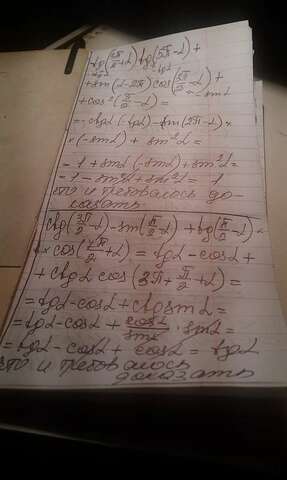 tg(3π/2+α) tg(5π-α)+
+sin(α-2π) cos(3π/2-α)+
+cos²(π/2-α)=
=-ctgα·(-tgα)-sin(2π-α)×
×(-sinα)+sin²α=
=1+sinα·(-sinα)+sin²α=
=1-sin²α+sin²α=1
что и требовалось до-
казать
ctg(3π/2-α)-sin(π/2-α)+tg(π/2-α)×
×cos(7π/2+α)=tgα-cosα+
+ctgα cos(3π+π/2+α)=
=tgα-cosα+ctg sinα=
=tgα-cosα+cosα/sinα·sinα=
=tgα-cosα+cosα=tgα
что и требалось
доказать